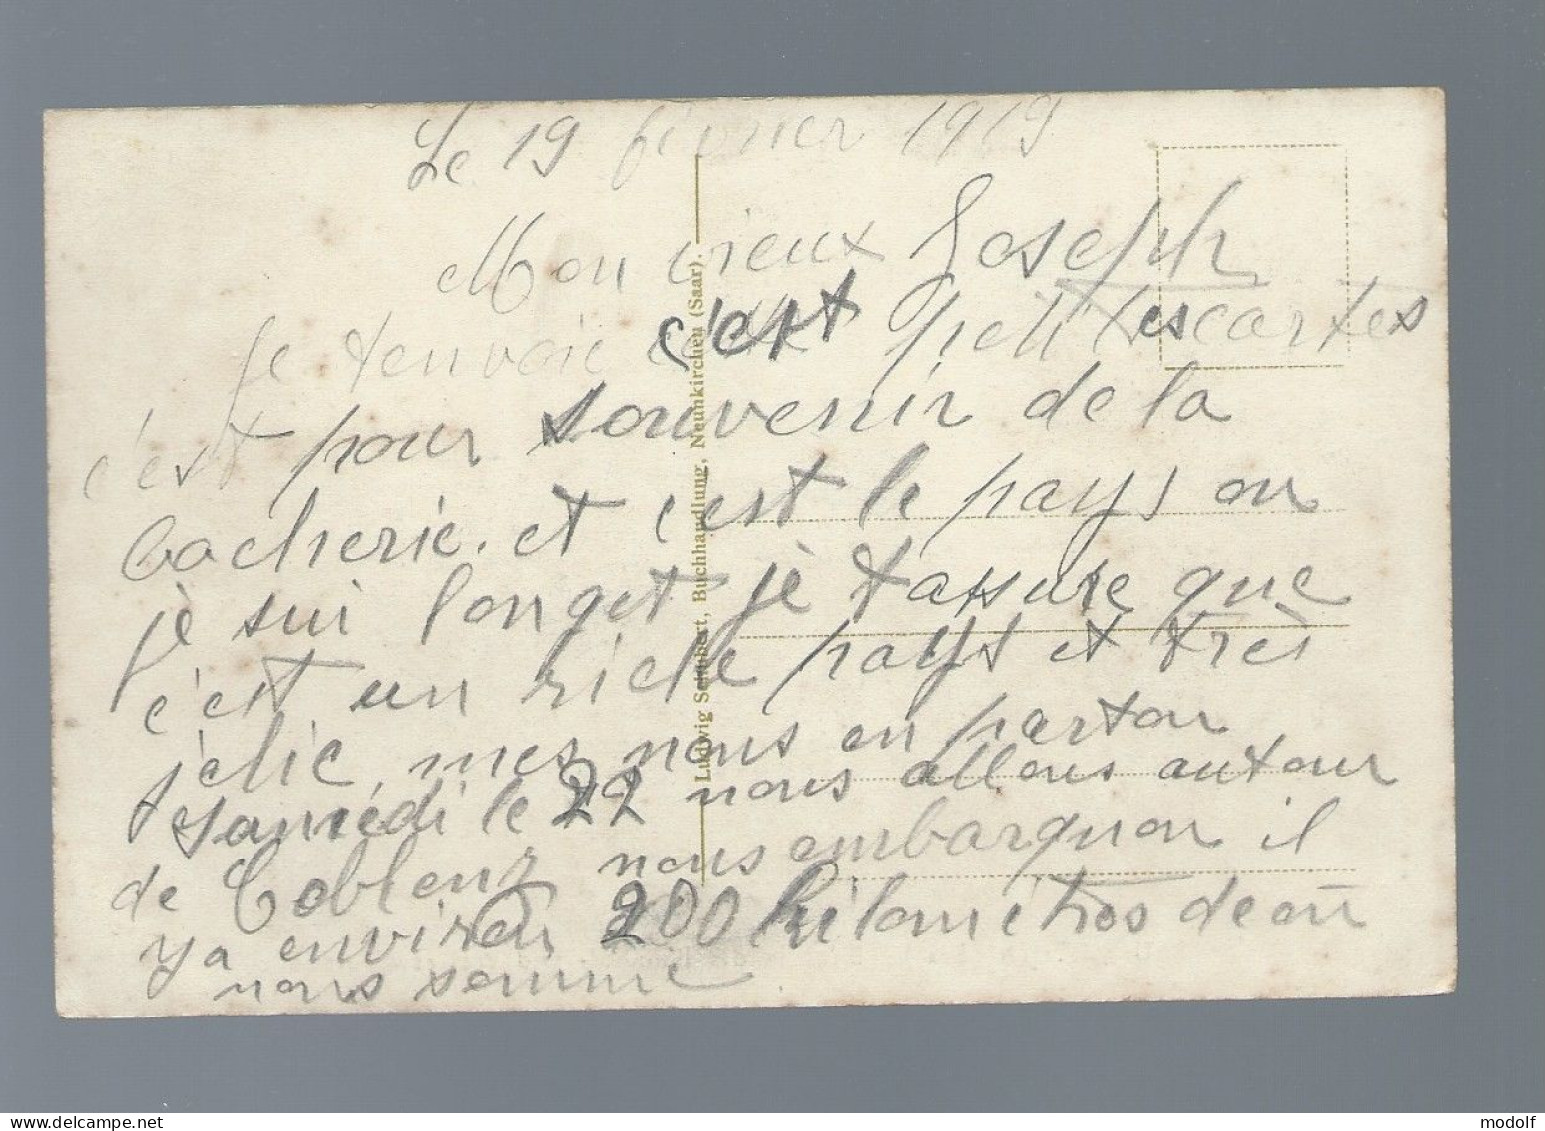 Le 19 février 1919
Mon vieux Joseph
Je tenvoie c'ert petittes cartes
c'est pour souvenir de la
bocherie. et c'est le pays ou
je sui longet je tassure que
c'est un riche pays et très
jolie mes nous en parton
samédi le 22 nous allons autour
de Coblenz nous embarquon il
ya environ 200 kilomètros de ou
nous somme
Ludwig Schubert, Buchhandlung, Neunkircheu (Saar).
delcampe.net
modolf